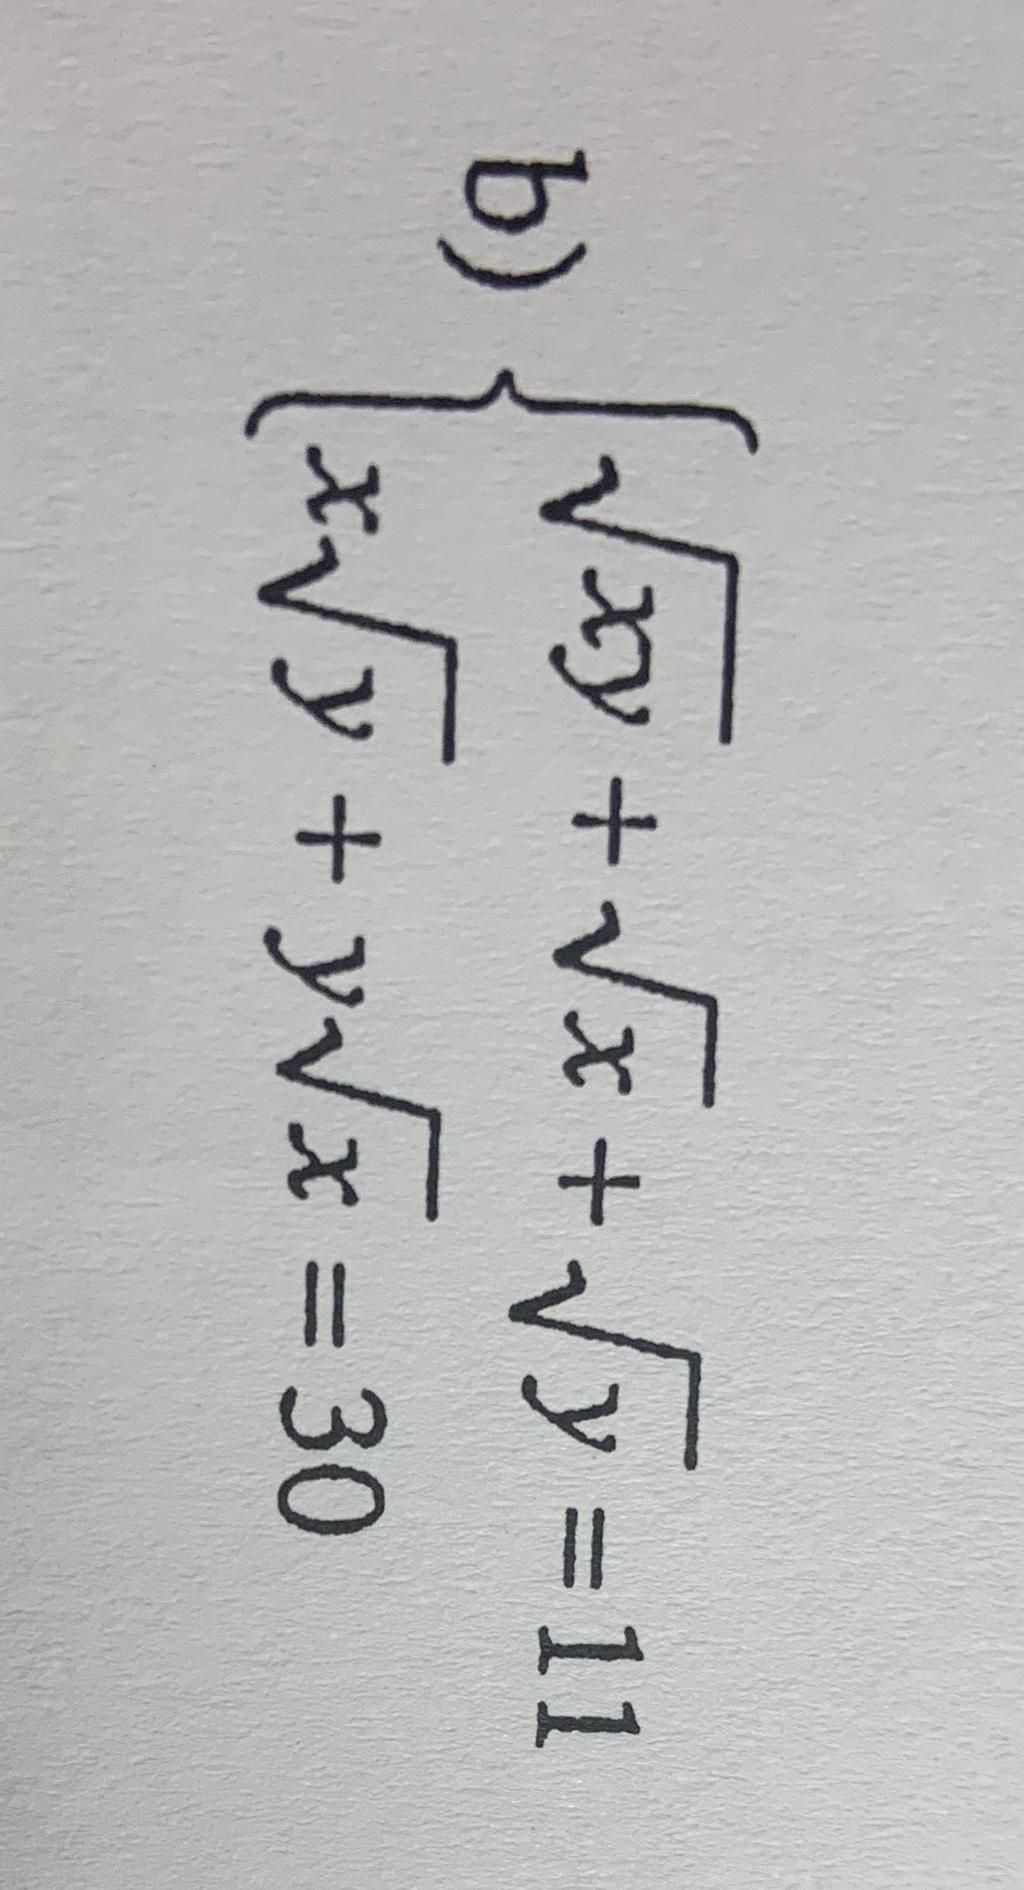 b) { √xy + √x + √y = 11
x√y + y√x = 30